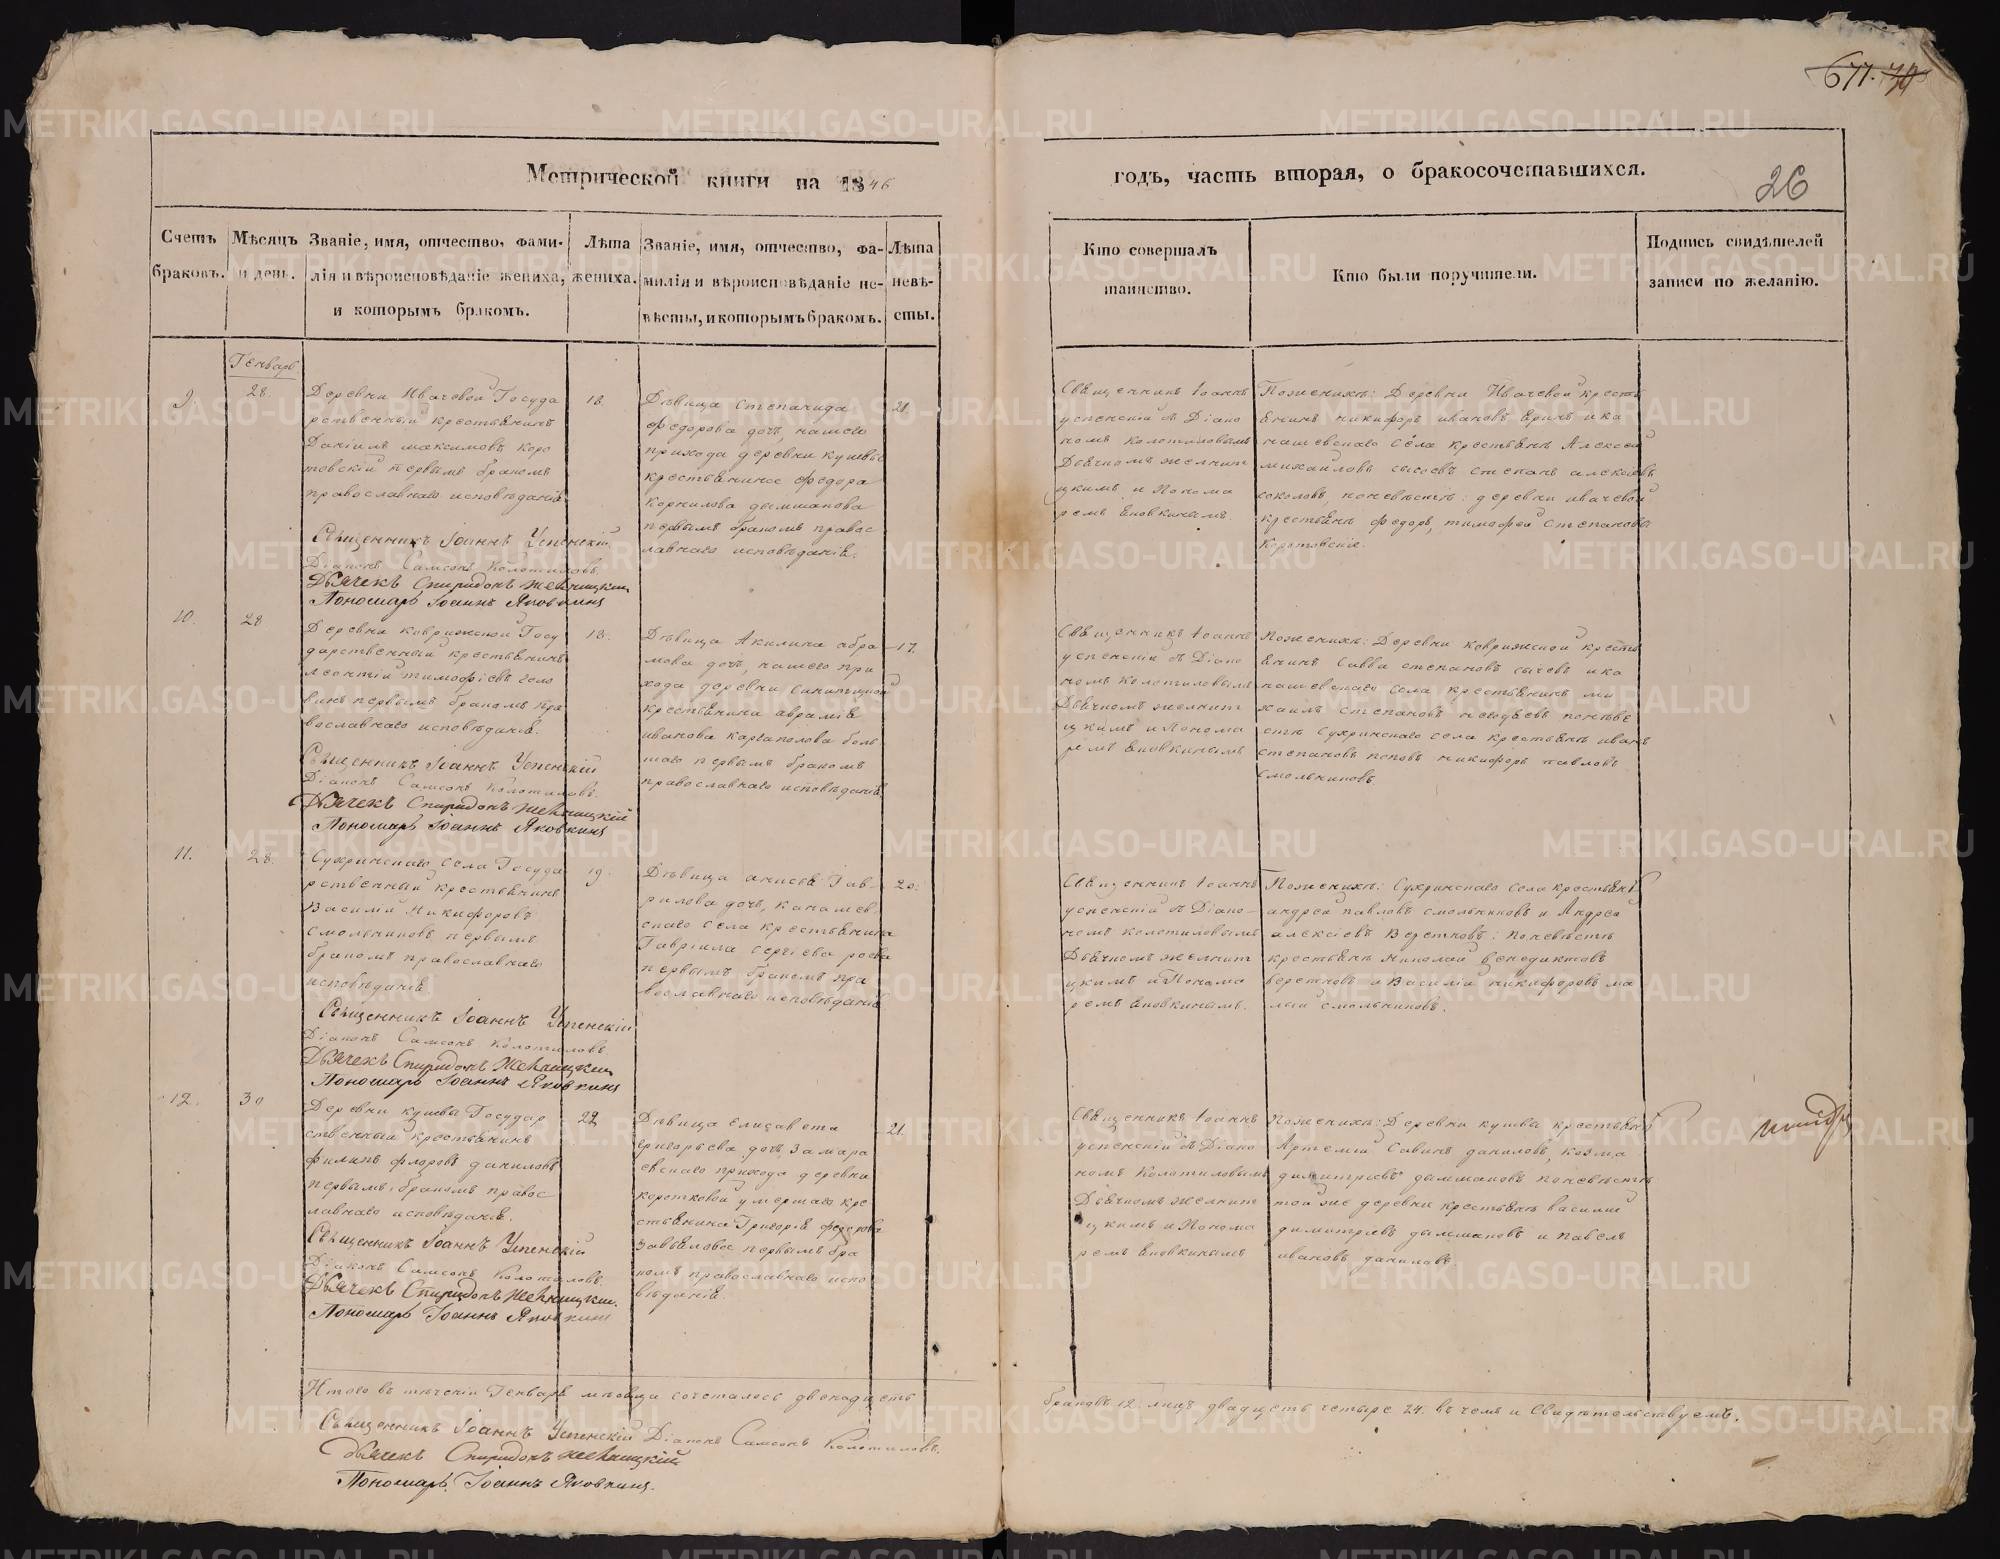 677. 70
Метрической книги на 1846
годъ, часть вторая, о бракосочетавшихся.
26
Счетъ браковъ.
Мѣсяцъ и день.
Званіе, имя, отчество, фами-
лія и вѣроисповѣданіе жениха,
и которымъ бракомъ.
Лѣта
жениха.
Званіе, имя, отчество, фа-
милія и вѣроисповѣданіе не-
вѣсты, и которымъ бракомъ.
Лѣта
невѣ-
сты.
Кто совершалъ
таинство.
Кто были поручители.
Подпись свидѣтелей
записи по желанію.
Генварь
9.
28.
Деревни Ивачевой Госуда
рственный крестьянинъ
Даніилъ максимовъ коро
товскій первымъ бракомъ
православнаго исповѣданія
Священникъ Іоаннъ Успенскій
Діаконъ Самсонъ Колотиловъ.
Дьячекъ Спиридонъ Желницкій
Пономарь Іоаннъ Яковкинъ
18.
Дѣвица степанида
федорова дочь, нашего
прихода деревни кушвы
крестьянина федора
корнилова дымшакова
первымъ бракомъ правос
лавнаго исповѣданія.
21.
Священникъ Іоаннъ
успенскій съ Діако
номъ колотиловымъ
Дьячкомъ желниц
кимъ и Понома
ремъ Яковкинымъ.
По женихѣ: Деревни Ивачевой кресть
янинъ никифоръ ивановъ
нашевскаго села крестьянъ Алексей
михаиловъ сысоевъ степанъ алексѣевъ
соколовъ, по невѣстѣ: деревни ивачевой
крестьянъ федоръ, тимофей степановы
коротовскіе.
10.
28
Деревни коврижской Госу
дарственный крестьянинъ
леонтій тимофіевъ
первымъ бракомъ пра
вославнаго исповѣданія.
Священникъ Іоаннъ Успенскій
Діаконъ Самсонъ Колотиловъ.
Дьячекъ Спиридонъ Желницкій
Пономарь Іоаннъ Яковкинъ
18.
Дѣвица Акилина абра
мова дочь, нашего при
хода деревни
крестьянина аврамія
иванова каргаполова боль
шаго первымъ бракомъ
православнаго исповѣданія.
17.
Священникъ Іоаннъ
успенскій съ Діако
номъ колотиловымъ
Дьячкомъ желниц
кимъ и Понома
ремъ Яковкинымъ
По женихѣ: Деревни коврижской кресть
янинъ Савва степановъ сычевъ и ка
нашевскаго села крестьянинъ ми
хаилъ степановъ по невѣ
стѣ Сухринскаго села крестьянъ иванъ
степановъ поповъ никифоръ павловъ
смольниковъ.
11.
28.
Сухринскаго Села Госуда
рственный крестьянинъ
Василій Никифоровъ
смольниковъ первымъ
бракомъ православнаго
исповѣданія
Священникъ Іоаннъ Успенскій
Діаконъ Самсонъ Колотиловъ
Дьячекъ Спиридонъ Желницкій
Пономарь Іоаннъ Яковкинъ
19.
Дѣвица анисья Гав-
рилова дочь, канашев
скаго села крестьянина
Гавріила сергіева
первымъ бракомъ пра
вославнаго исповѣданія
20.
Священникъ Іоаннъ
успенскій съ Діако-
номъ колотиловымъ
Дьячкомъ желниц
кимъ и Понома
ремъ Яковкинымъ.
По женихѣ: Сухринскаго села крестьянъ
андрей павловъ смольниковъ и Андрей
алексіевъ Веретновъ: По невѣстѣ
крестьянъ Николай венедиктовъ
веретновъ и Василій никифоровъ ма
лый смольниковъ.
12.
30
Деревни кушвы Государ
ственный крестьянинъ
филипъ флоровъ даниловъ
первымъ бракомъ правос
лавнаго исповѣданія.
Священникъ Іоаннъ Успенскій
Діаконъ Самсонъ Колотиловъ
Дьячекъ Спиридонъ Желницкій.
Пономарь Іоаннъ Яковкинъ
22
Дѣвица Елисавета
григорьева дочь, Замара
евскаго прихода деревни
коротковой умершаго кре
стьянина Григорія федорова
завьялова первымъ бра
комъ православнаго испо
вѣданія.
21.
Священникъ Іоаннъ
успенскій съ Діако
номъ Колотиловымъ
Дьячкомъ желниц
кимъ и Понома
ремъ Яковкинымъ
По женихѣ: Деревни кушвы крестьянъ
Артемій Савинъ даниловъ, козма
димитріевъ дымшаковъ по невѣстѣ
той же деревни крестьянъ василій
димитріевъ дымшаковъ и павелъ
ивановъ даниловъ
Итого въ теченіи Генваря мѣсяца сочеталось двенадцать
браковъ 12. лицъ двадцать четыре 24. въ чемъ и Свидѣтельствуемъ.
Священникъ Іоаннъ Успенскій Діаконъ Самсонъ Колотиловъ.
Дьячекъ Спиридонъ Желницкій
Пономарь Іоаннъ Яковкинъ.
METRIKI.GASO-URAL.RU